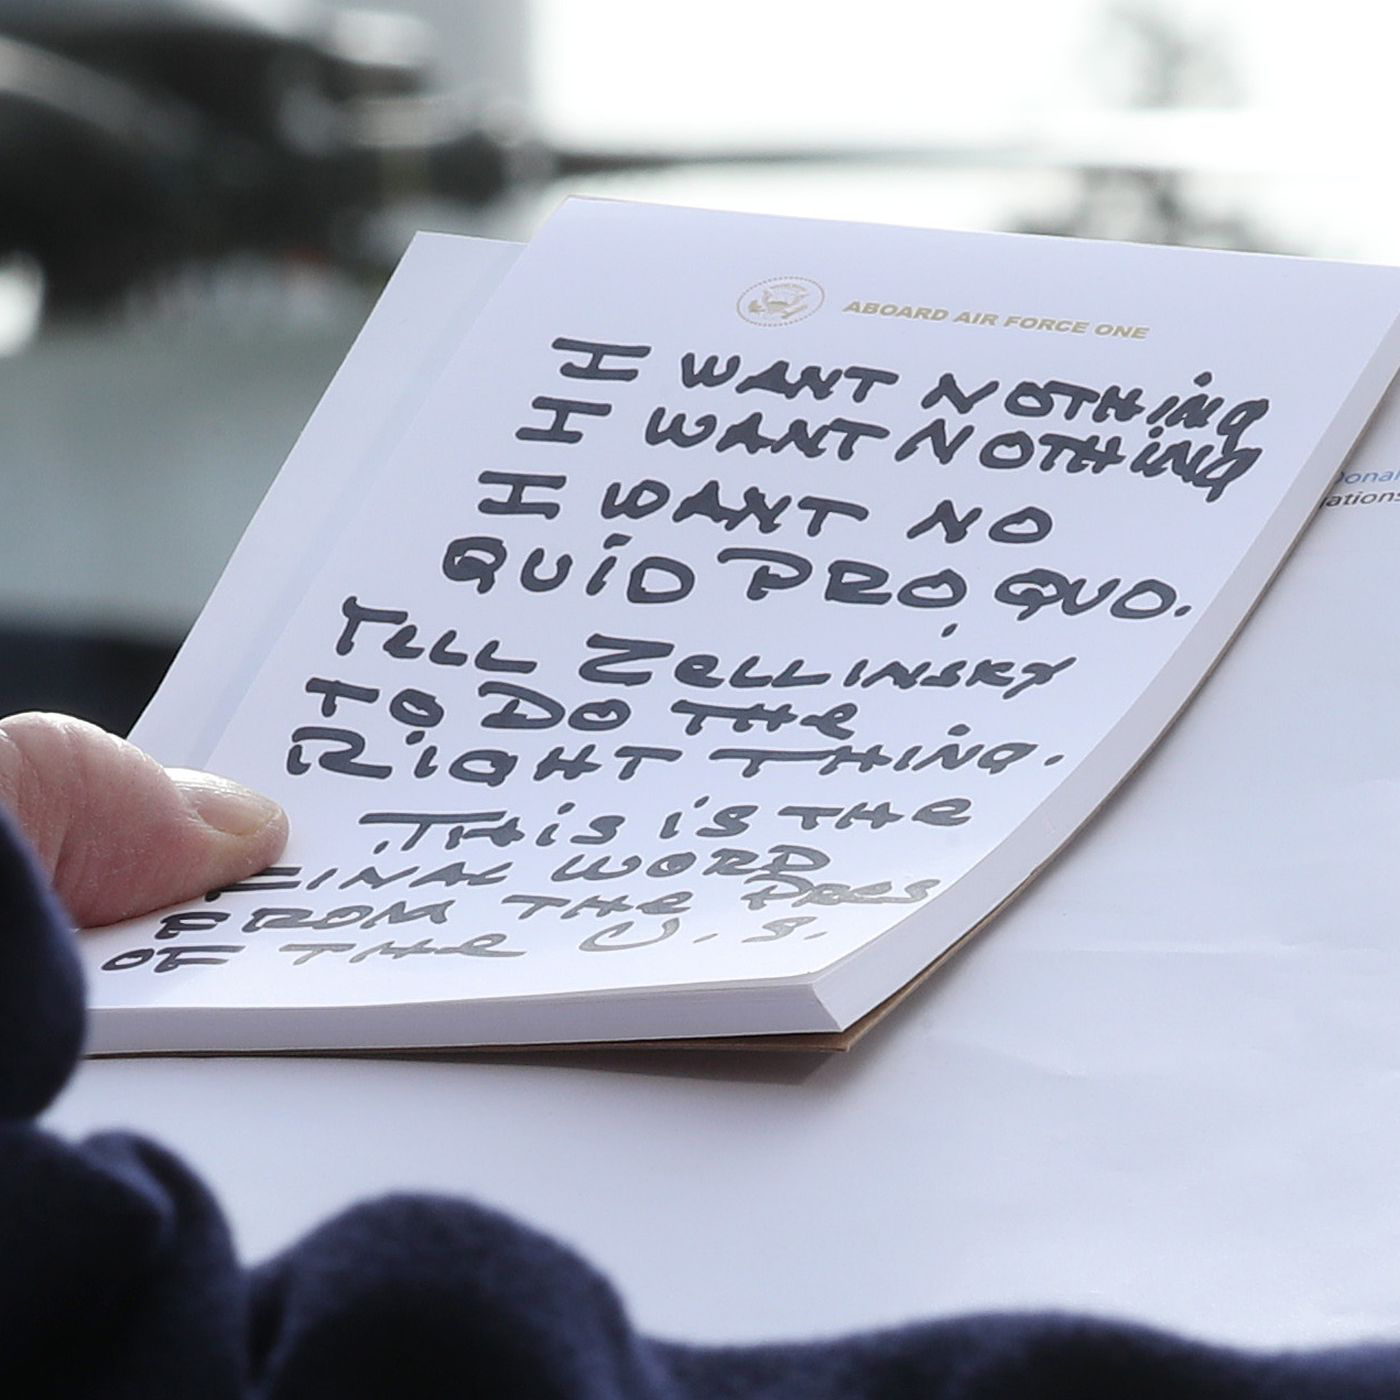 ABOARD AIR FORCE ONE
I WANT NOTHING
I WANT NOTHING
I WANT NO
QUID PRO QUO.
TELL ZELLINSKY
TO DO THE
RIGHT THING.
.THIS IS THE
FINAL WORD
FROM THE PRES
OF THE U.S.